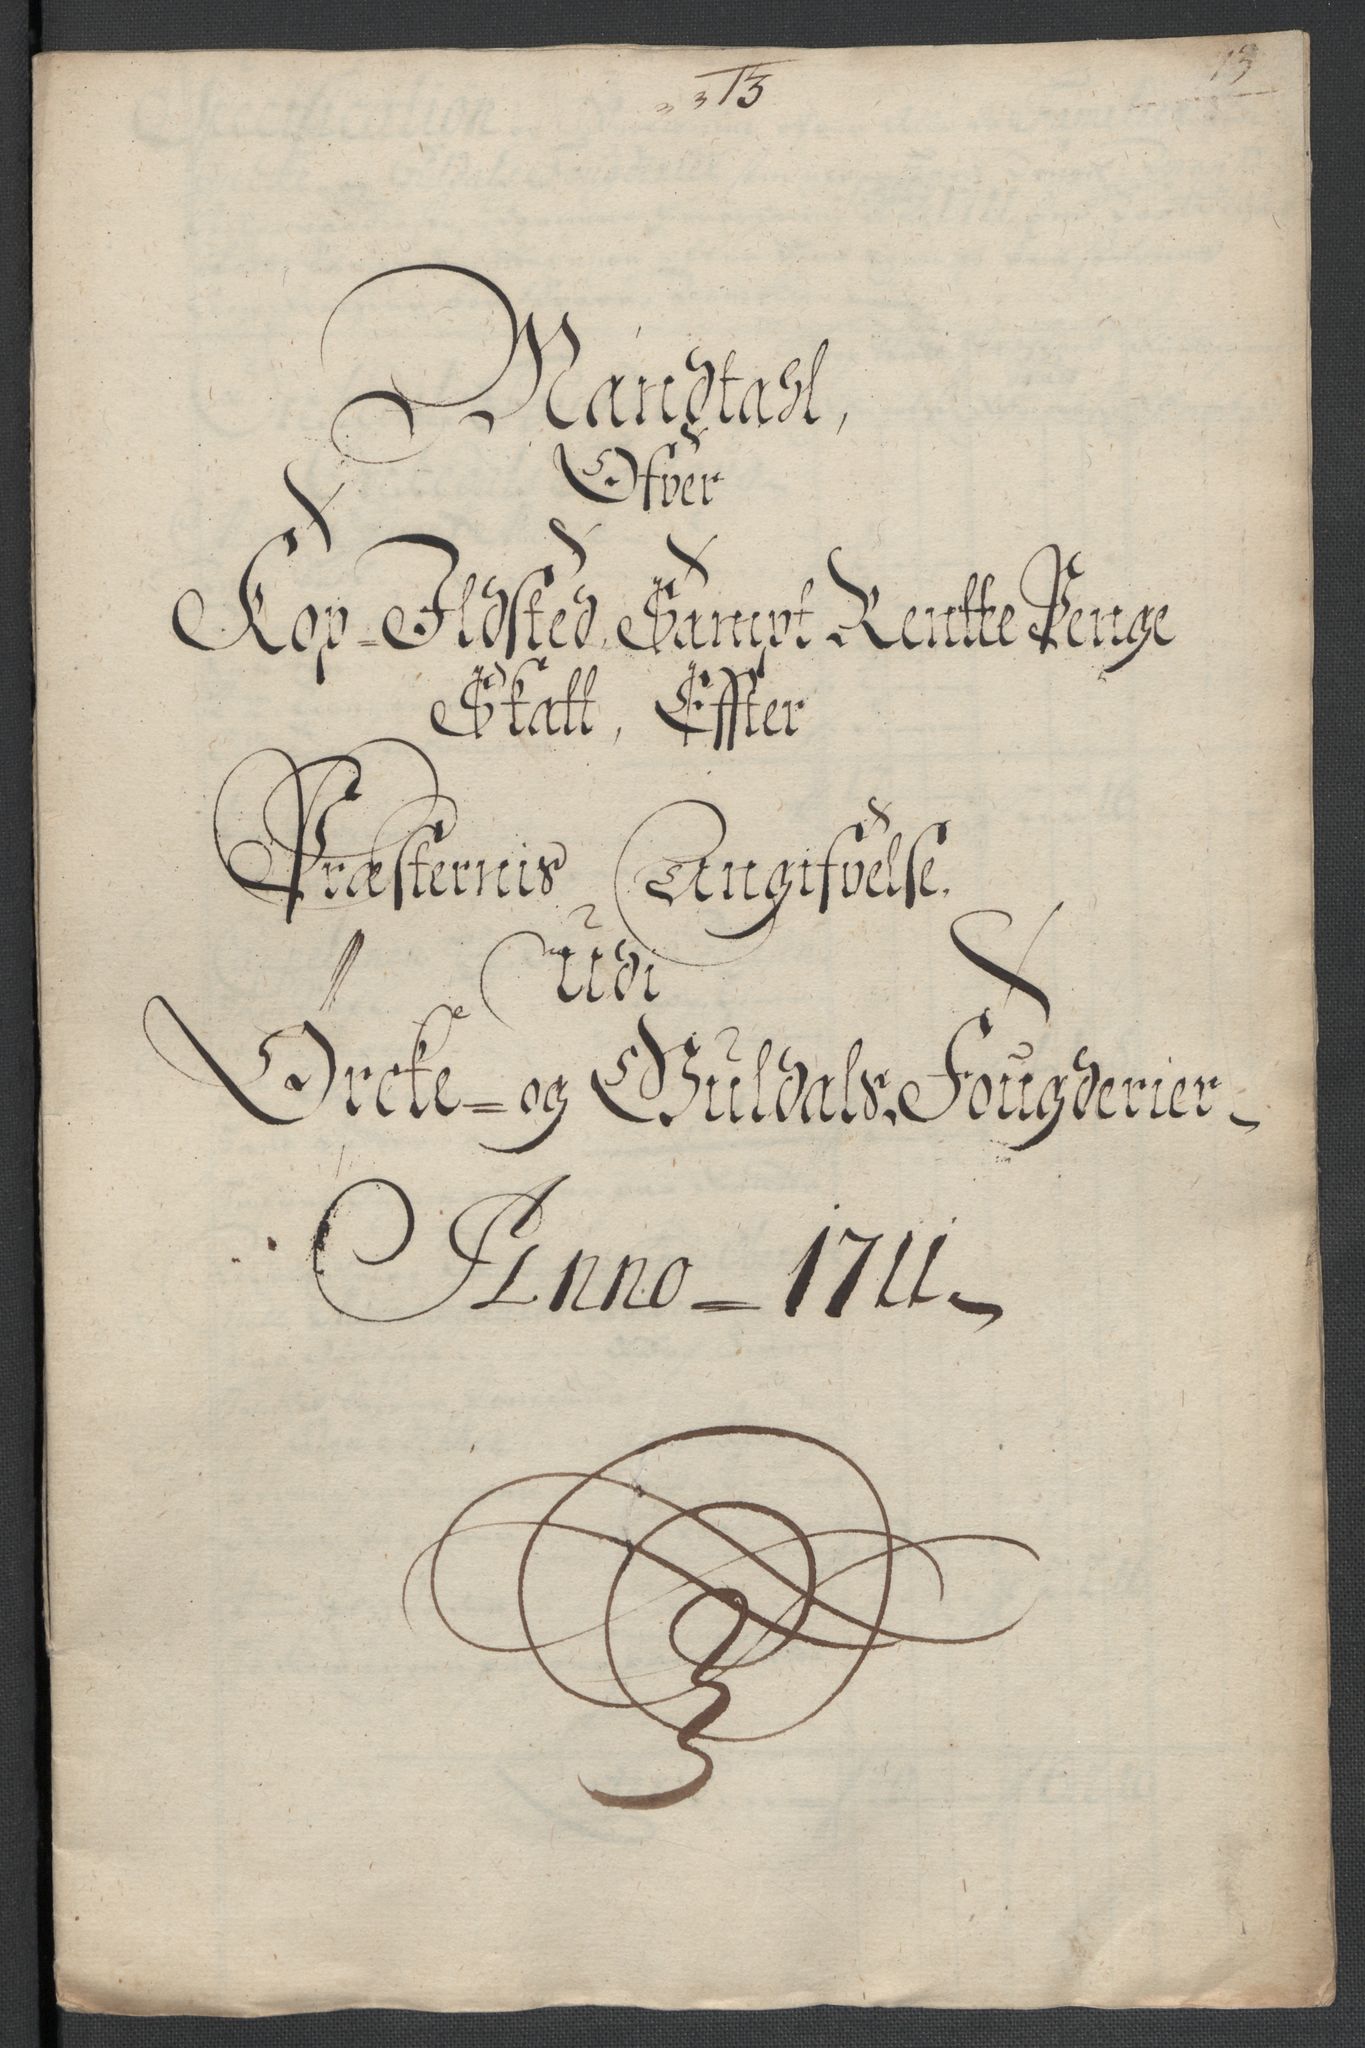 13
13
Mandtahl,
Ofver
Kop- Ildsted, Sampt Rentte Penge
Skatt, Effter
Præsternis Angifvelse.
Udi
Örcke- og Guldals, Fougderier
Anno - 1711